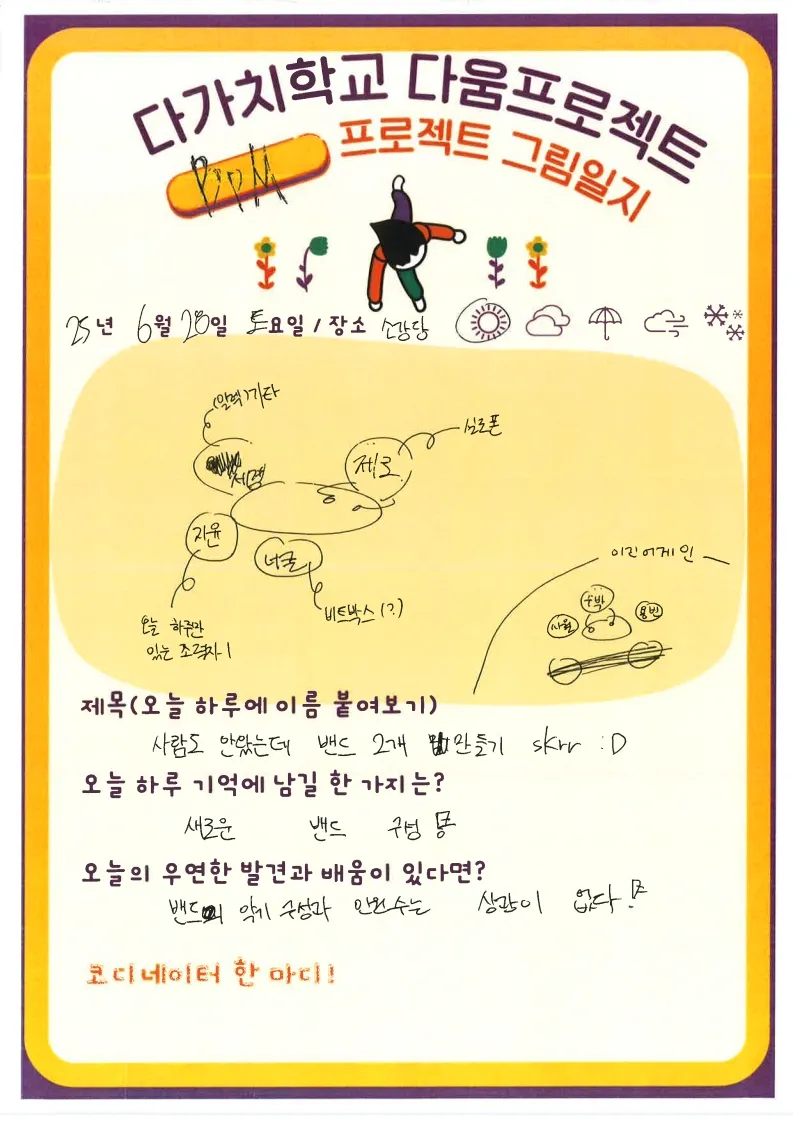 다가치학교 다움프로젝트
프로젝트 그림일지
BpM
25년 6월 28일 토요일 / 장소 소강당
(일렉)기타
실로폰
제로
지윤
너굴
비트박스(?)
오늘 하루만
있는 조력자1
이진어게인
수박
사월
용빈
제목(오늘 하루에 이름 붙여보기)
사람도 안왔는데 밴드 2개 만들기 skrr :D
오늘 하루 기억에 남길 한 가지는?
새로운 밴드 구성
오늘의 우연한 발견과 배움이 있다면?
밴드의 악기 구성과 인원수는 상관이 없다!
코디네이터 한 마디!